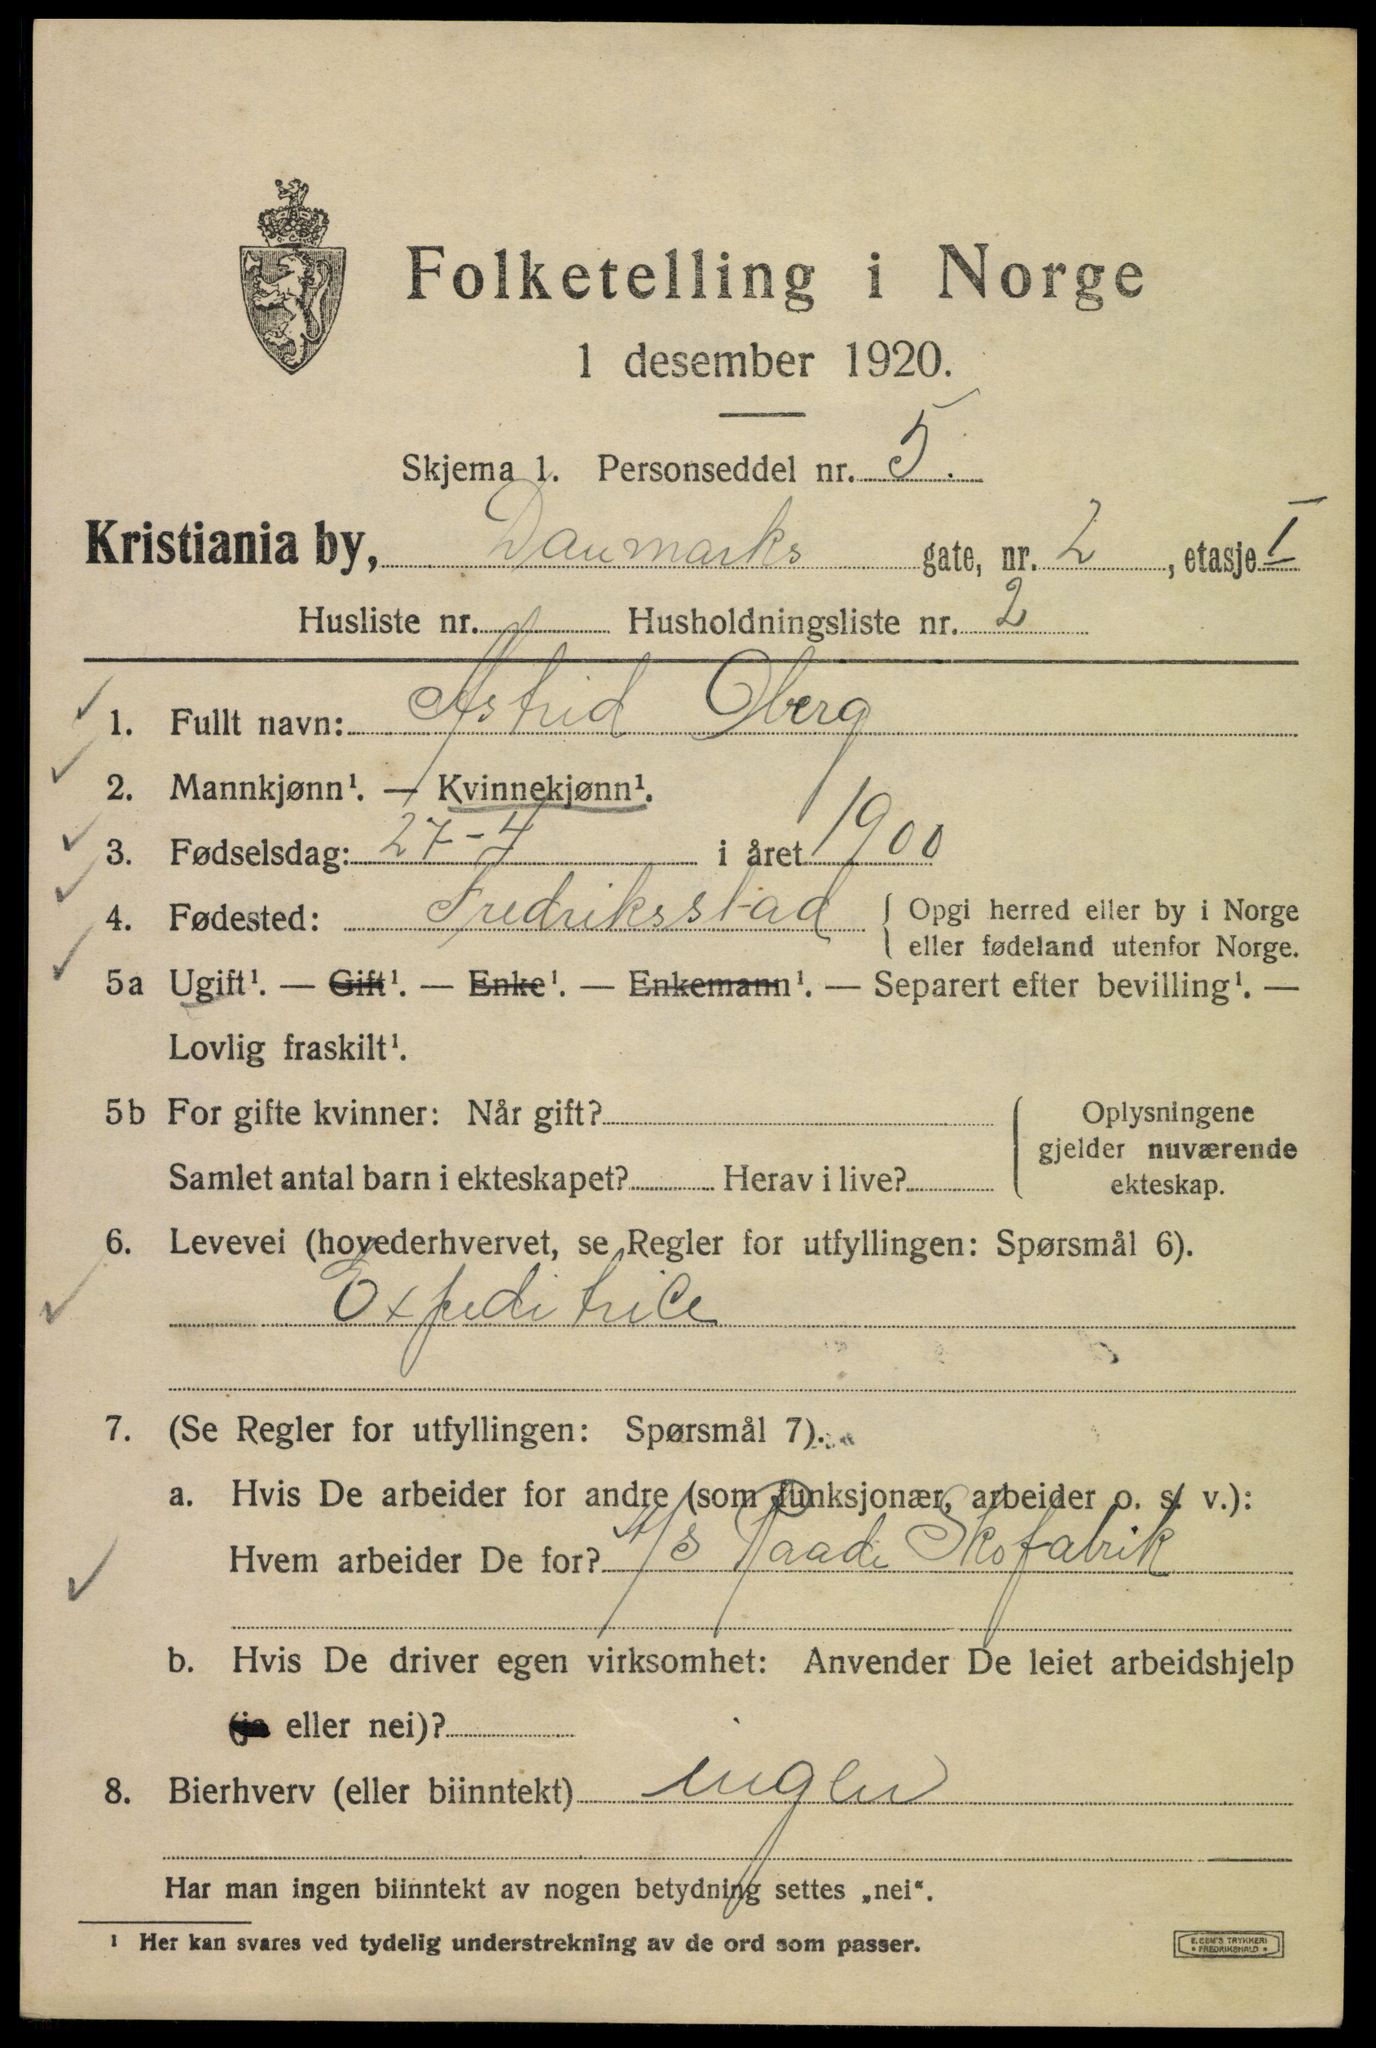 Folketelling i Norge
1 desember 1920.
Skjema 1. Personseddel nr. 5.
Kristiania by, Danmarks gate, nr. 2, etasje I
Husliste nr. Husholdningsliste nr. 2
1. Fullt navn: Astrid Oberg
2. Mannkjønn¹. — Kvinnekjønn¹.
3. Fødselsdag: 27-4 i året 1900
4. Fødested: Fredriksstad { Opgi herred eller by i Norge
eller fødeland utenfor Norge.
5a Ugift¹. — Gift¹. — Enke¹. — Enkemann¹. — Separert efter bevilling¹. —
Lovlig fraskilt¹.
5b For gifte kvinner: Når gift? { Oplysningene
gjelder nuværende
Samlet antal barn i ekteskapet? Herav i live? ekteskap.
6. Levevei (hovederhvervet, se Regler for utfyllingen: Spørsmål 6).
Expeditrice
7. (Se Regler for utfyllingen: Spørsmål 7).
a. Hvis De arbeider for andre (som funksjonær, arbeider o. s. v.):
Hvem arbeider De for? A/S Raade Skofabrik
b. Hvis De driver egen virksomhet: Anvender De leiet arbeidshjelp
(ja eller nei)?
8. Bierhverv (eller biinntekt) ingen
Har man ingen biinntekt av nogen betydning settes „nei“.
¹ Her kan svares ved tydelig understrekning av de ord som passer.
E. SEM'S TRYKKERI
FREDRIKSHALD